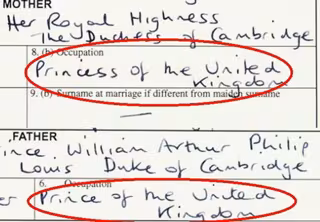 MOTHER
Her Royal Highness
The Duchess of Cambridge
8. (b) Occupation
Princess of the United
Kingdom
9. (b) Surname at marriage if different from maiden surname
FATHER
ince William Arthur Philip
Louis Duke of Cambridge
6. Occupation
er Prince of the United
Kingdom